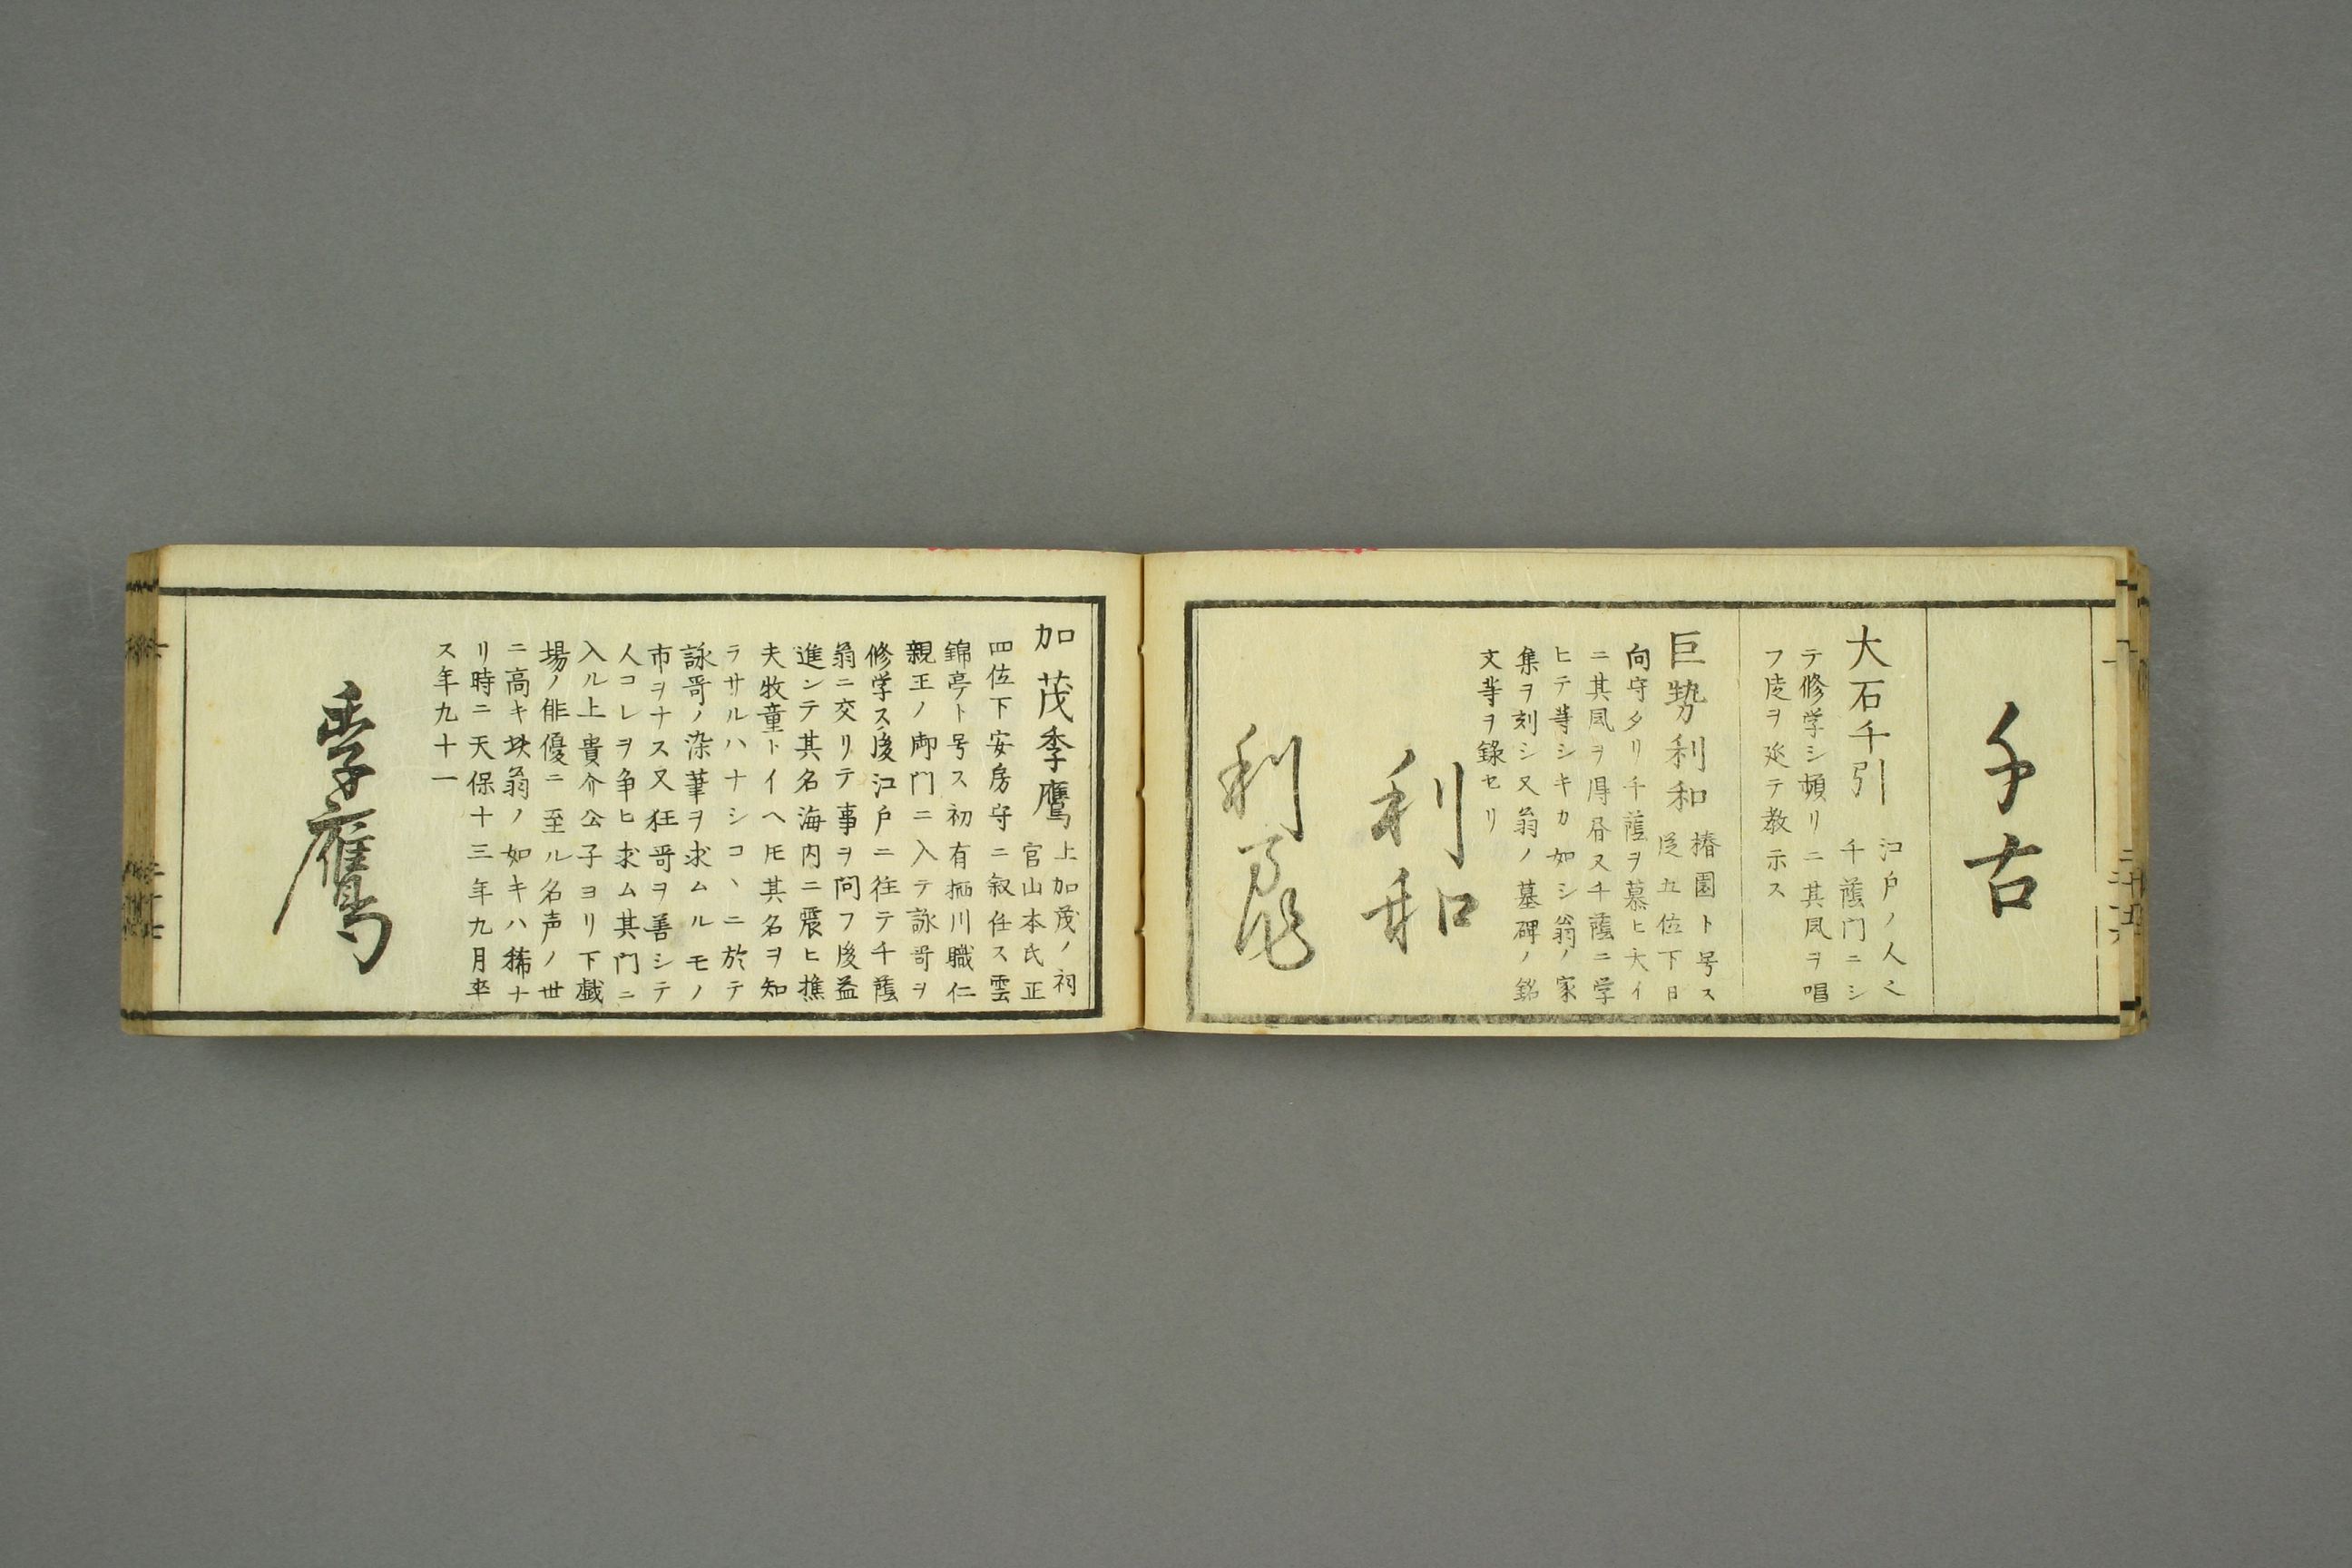 千古
大石千引
江戸ノ人也
千蔭門ニシ
テ修学シ頻リニ其風ヲ唱
フ徒ヲ延テ教示ス
巨勢利和
椿園ト号ス
従五位下日
向守タリ千蔭ヲ慕ヒ大イ
ニ其風ヲ得 又千蔭ニ学
ヒテ等シキカ如シ翁ノ家
集ヲ刻シ又翁ノ墓碑ノ銘
文等ヲ録セリ
利和
利
加茂季鷹
上加茂ノ祠
官山本氏正
四位下安房守ニ叙任ス雲
錦亭ト号ス初有栖川職仁
親王ノ御門ニ入テ詠哥ヲ
修学ス後江戸ニ往テ千蔭
翁ニ交リテ事ヲ問フ後益
進ンテ其名海内ニ震ヒ樵
夫牧童トイヘ𪜈其名ヲ知
ラサルハナシコヽニ於テ
詠哥ノ染筆ヲ求ムルモノ
市ヲナス又狂哥ヲ善シテ
人コレヲ争ヒ求ム其門ニ
入ル上貴介公子ヨリ下戯
場ノ俳優ニ至ル名声ノ世
ニ高キ此翁ノ如キハ稀ナ
リ時ニ天保十三年九月卒
ス年九十一
季鷹